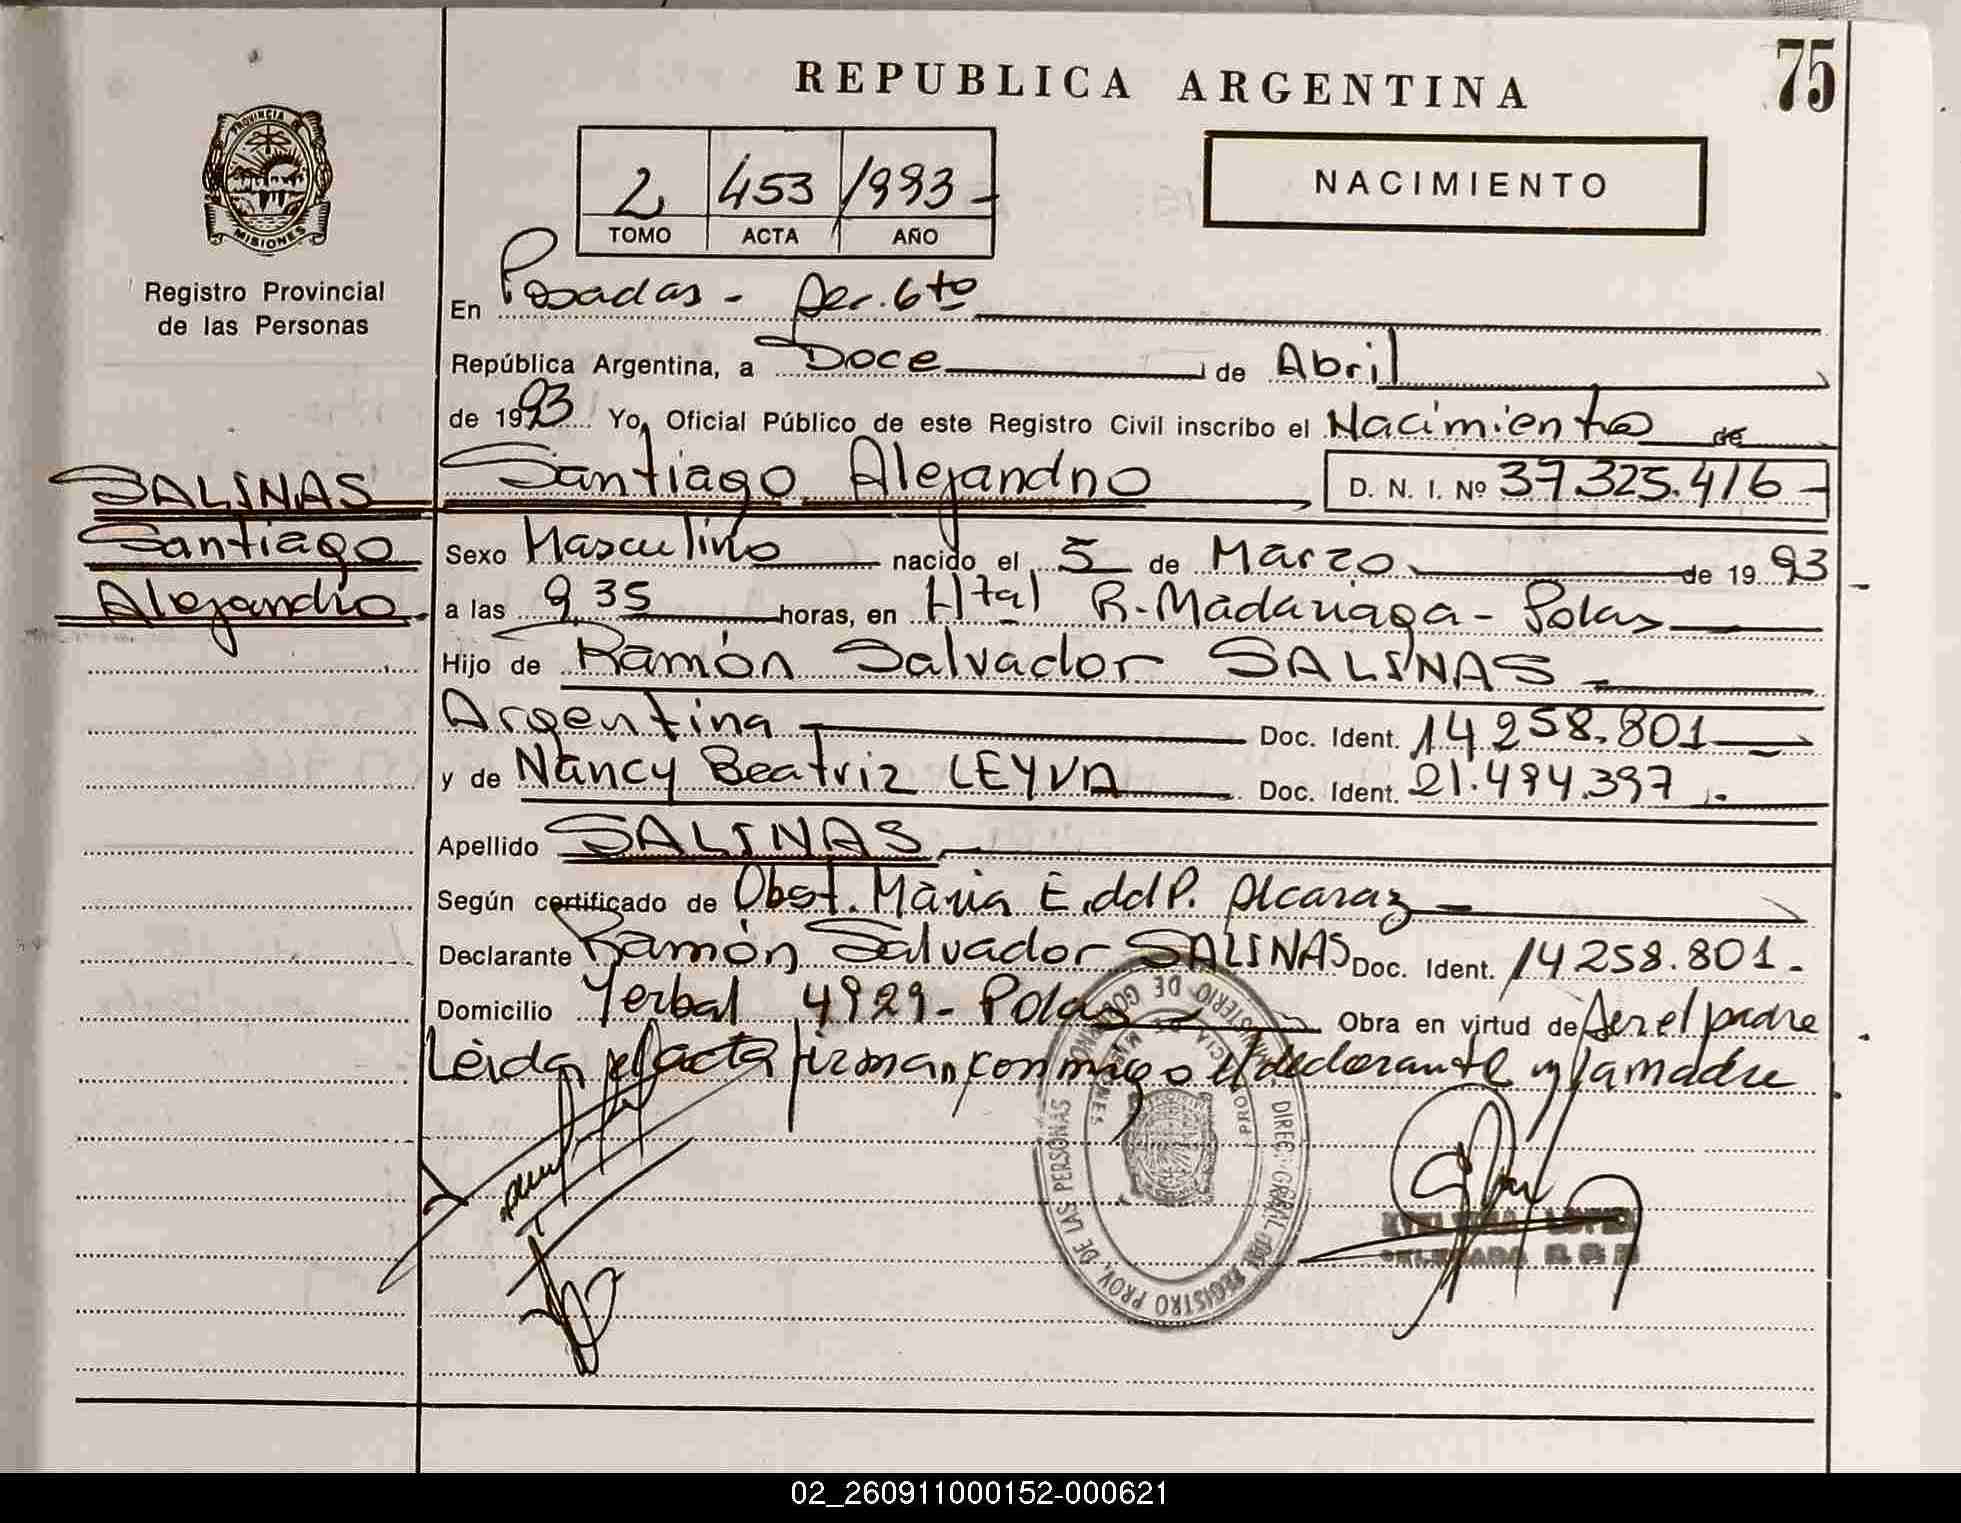 REPUBLICA ARGENTINA
75
PROVINCIA DE
MISIONES
Registro Provincial
de las Personas
2 453 1993
TOMO ACTA AÑO
NACIMIENTO
En Posadas - Sec. 6to
República Argentina, a Doce de Abril
de 1993 Yo, Oficial Público de este Registro Civil inscribo el Nacimiento de
Santiago Alejandro D. N. I. Nº 37.325.416
SALINAS
Santiago
Alejandro
Sexo Masculino nacido el 5 de Marzo de 1993
a las 9,35 horas, en Htal R. Madariaga - Pdas
Hijo de Ramón Salvador SALINAS
Argentina Doc. Ident. 14.258.801
y de Nancy Beatriz LEYVA Doc. Ident. 21.494.397
Apellido SALINAS
Según certificado de Obst. Maria E. del P. Alcaraz
Declarante Ramón Salvador SALINAS Doc. Ident. 14.258.801.
Domicilio Yerbal 4929 - Pdas Obra en virtud de ser el padre
Leida el acta firman conmigo el declarante y la madre
MINISTERIO DE GOBIERNO
DIREC. GRAL. DEL REGISTRO PROV. DE LAS PERSONAS
PROVINCIA DE MISIONES
LOPEZ
02_260911000152-000621